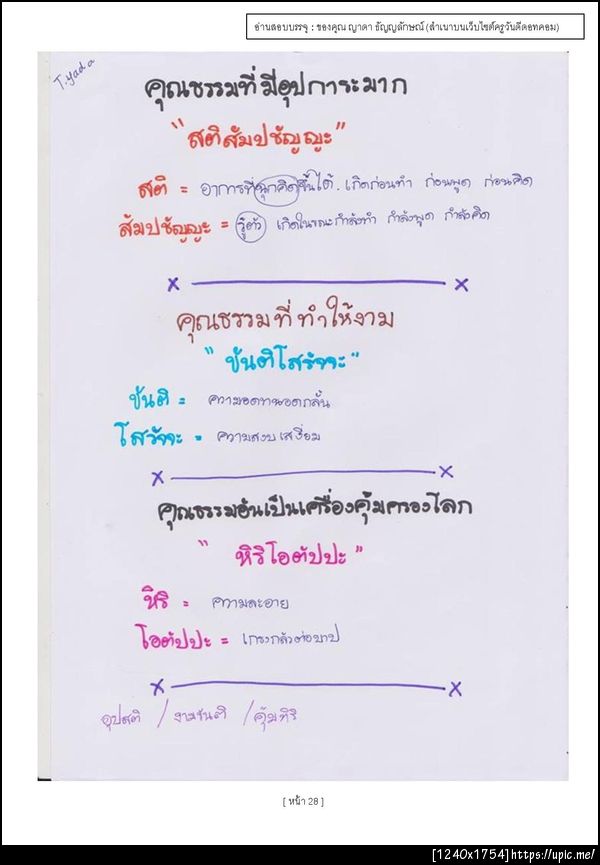 อ่านสอบบรรจุ : ของคุณ ญาดา ธัญญลักษณ์ (สำเนาบนเว็บไซต์ครูวันดีดอทคอม)
T.yada
คุณธรรมที่มีอุปการะมาก
"สติสัมปชัญญะ"
สติ = อาการที่นึกคิดขึ้นได้. เกิดก่อนทำ ก่อนพูด ก่อนคิด
สัมปชัญญะ = รู้ตัว เกิดในขณะกำลังทำ กำลังพูด กำลังคิด
x x
คุณธรรมที่ทำให้งาม
"ขันติโสรัจจะ"
ขันติ = ความอดทนอดกลั้น
โสรัจจะ = ความสงบเสงี่ยม
x x
คุณธรรมอันเป็นเครื่องคุ้มครองโลก
"หิริโอตัปปะ"
หิริ = ความละอาย
โอตัปปะ = เกรงกลัวต่อบาป
x x
อุปสติ / งามขันติ / คุ้มหิริ
[ หน้า 28 ]
[1240x1754]https://upic.me/